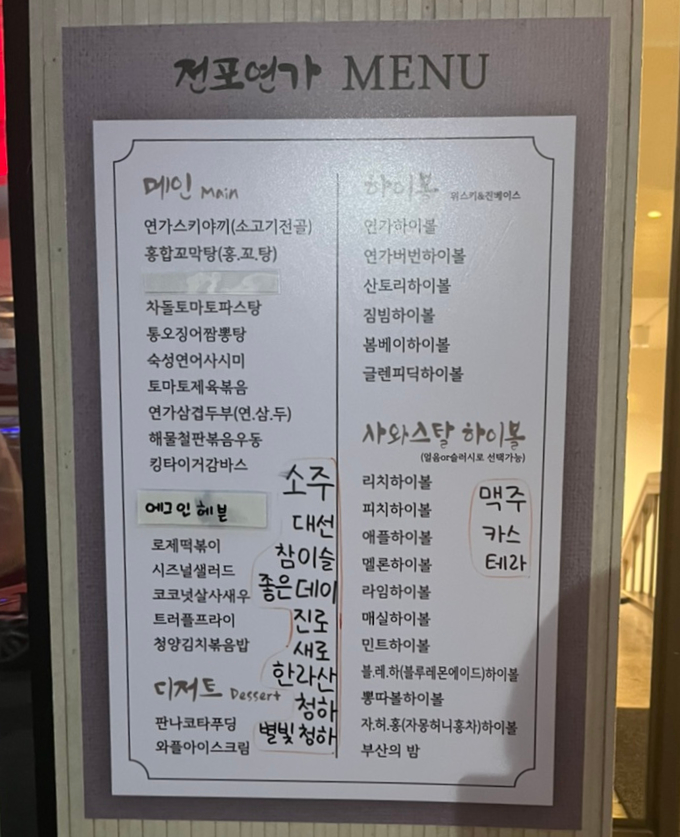 전포연가 MENU
메인 Main
연가스키야끼(소고기전골)
홍합꼬막탕(홍.꼬.탕)
차돌토마토파스탕
통오징어짬뽕탕
숙성연어사시미
토마토제육볶음
연가삼겹두부(연.삼.두)
해물철판볶음우동
킹타이거감바스
에그인헤븐
로제떡볶이
시즈널샐러드
코코넛살사새우
트러플프라이
청양김치볶음밥
디저트 Dessert
판나코타푸딩
와플아이스크림
소주
대선
참이슬
좋은데이
진로
새로
한라산
청하
별빛청하
하이볼 위스키&진베이스
연가하이볼
연가버번하이볼
산토리하이볼
짐빔하이볼
봄베이하이볼
글렌피딕하이볼
사와스탈 하이볼
(얼음or슬러시로 선택가능)
리치하이볼
피치하이볼
애플하이볼
멜론하이볼
라임하이볼
매실하이볼
민트하이볼
블.레.하(블루레몬에이드)하이볼
뽕따볼하이볼
자.허.홍(자몽허니홍차)하이볼
부산의 밤
맥주
카스
테라